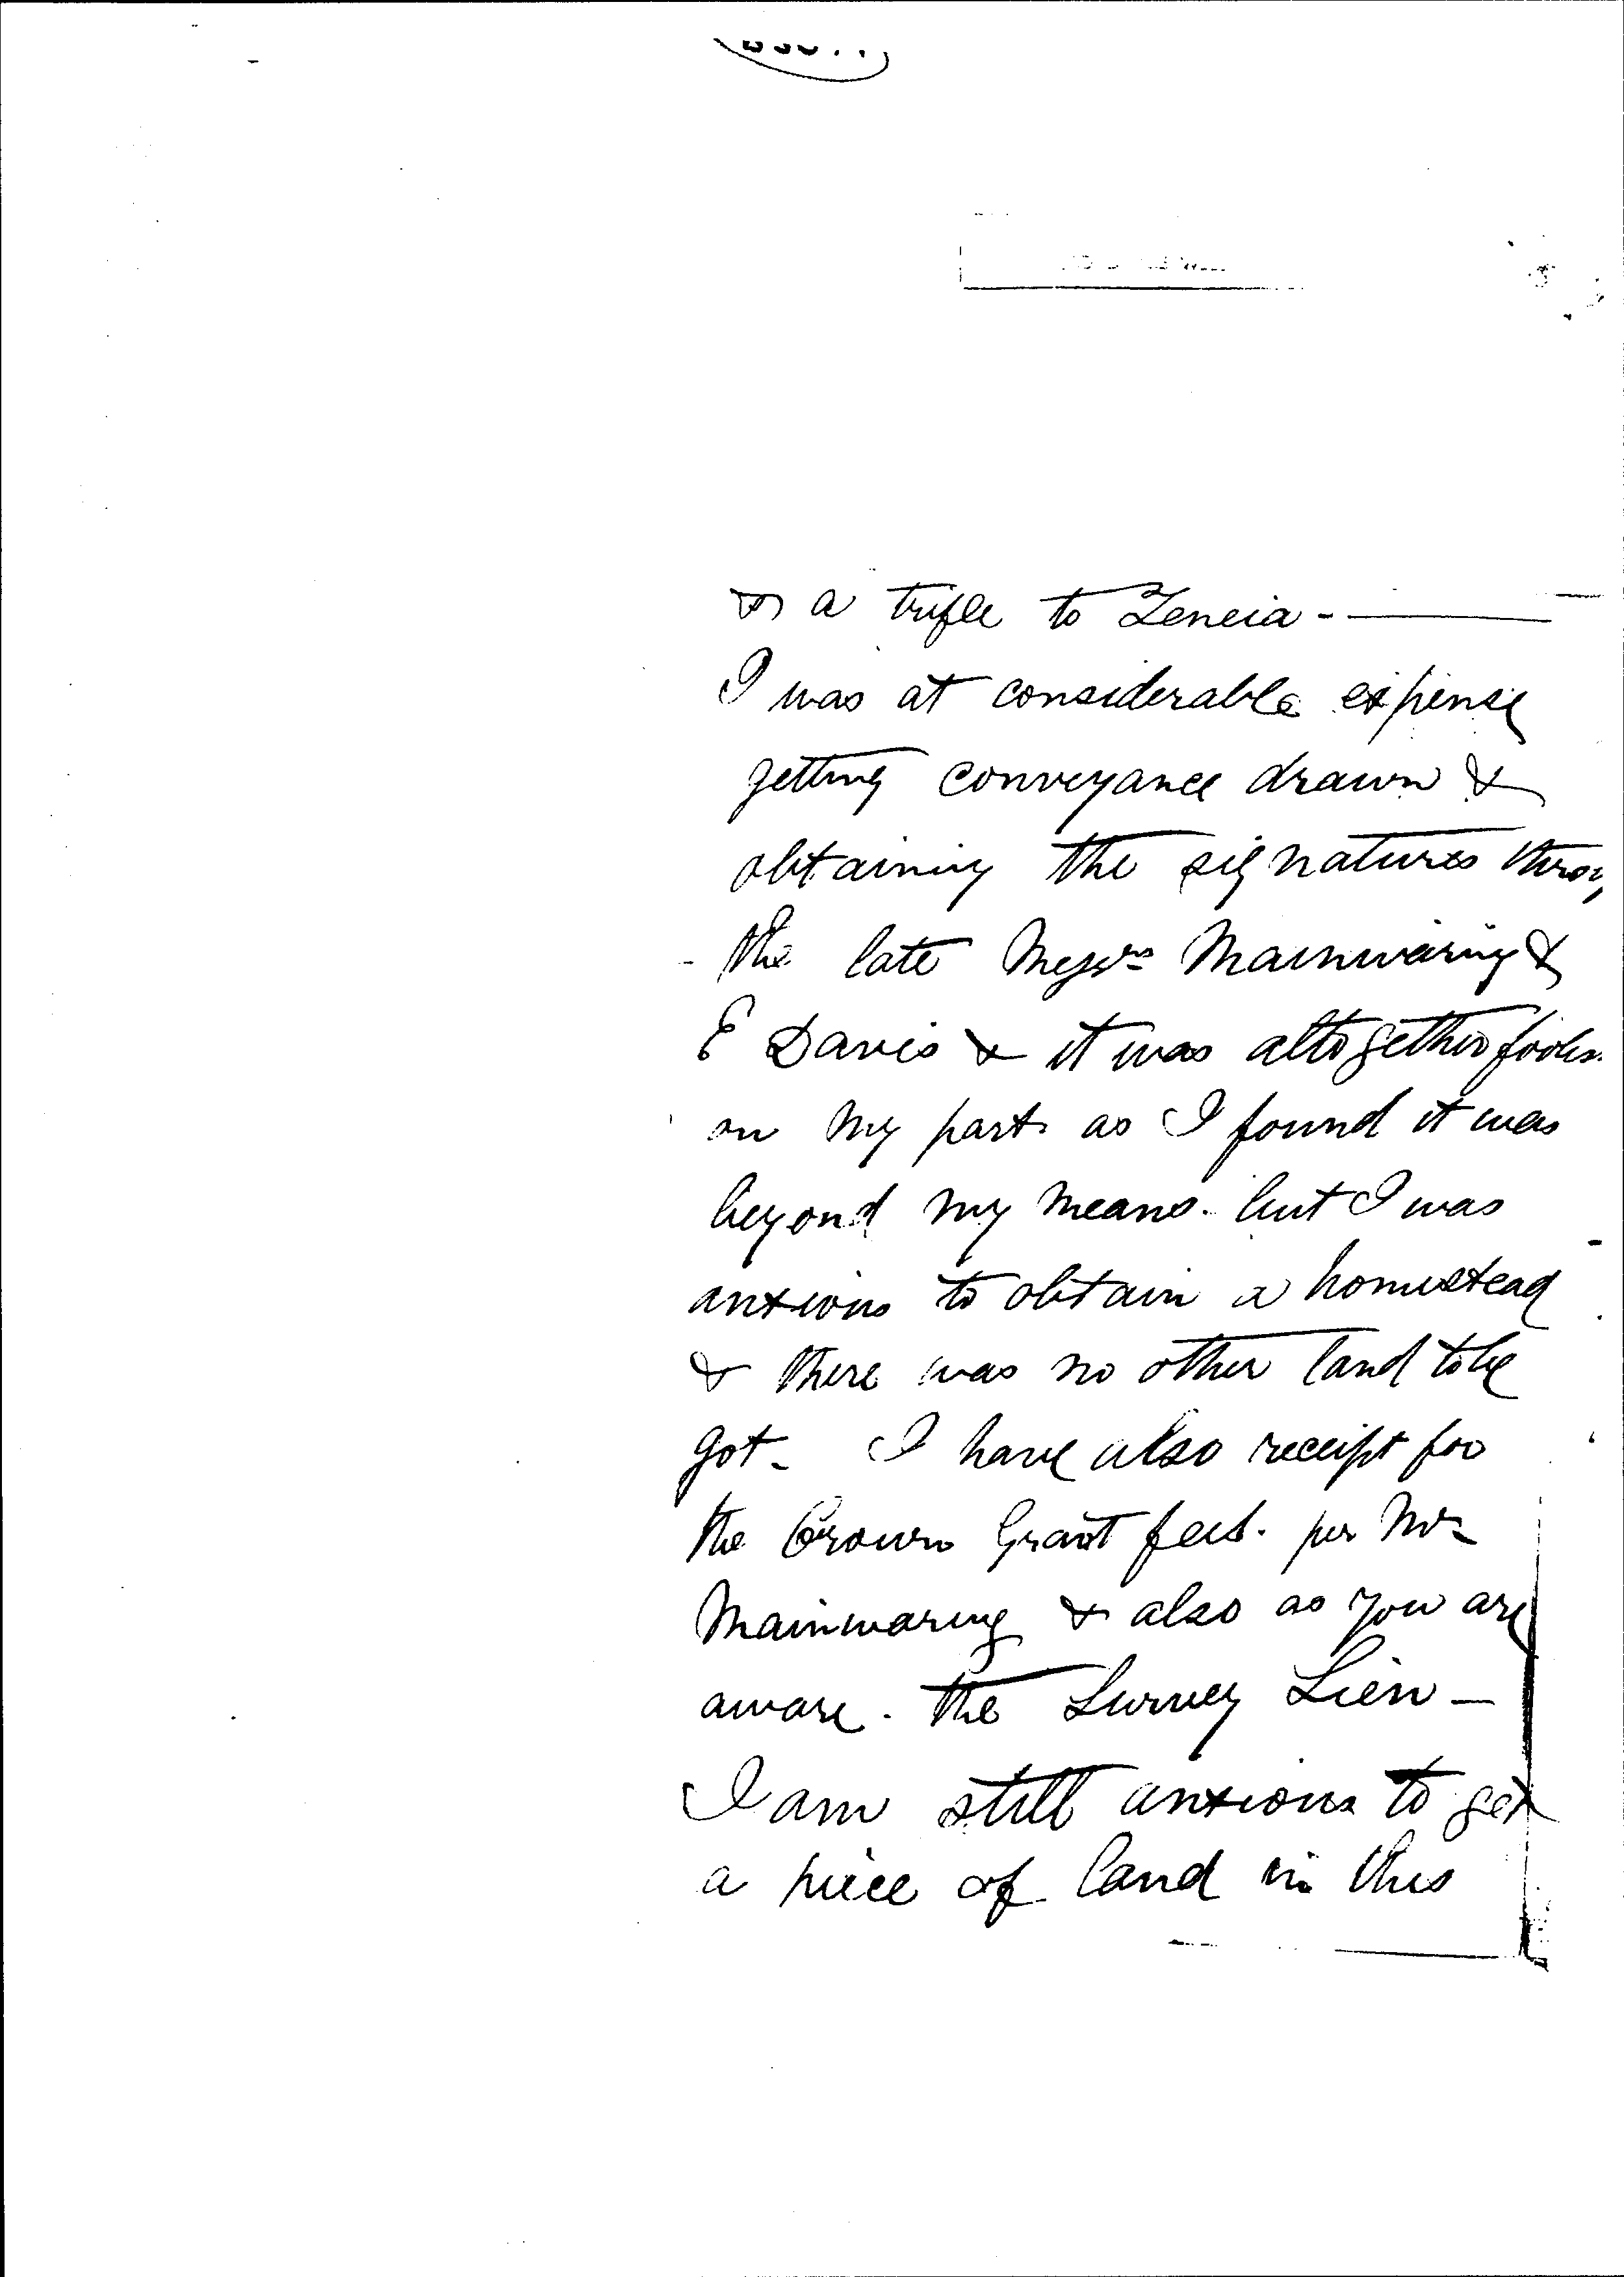 & a trifle to Zeneia -
I was at considerable expense
getting conveyance drawn &
obtaining the signatures throu
the late Messrs Mainwaring &
E Davis & it was altogether foolis
on my part as I found it was
beyond my means - but I was
anxious to obtain a homestead
& there was no other land to be
got - I have also receipt for
the Crown Grant fees. per Mr
Mainwaring & also as you are
aware. the Survey Lien -
I am still anxious to get
a piece of land in this